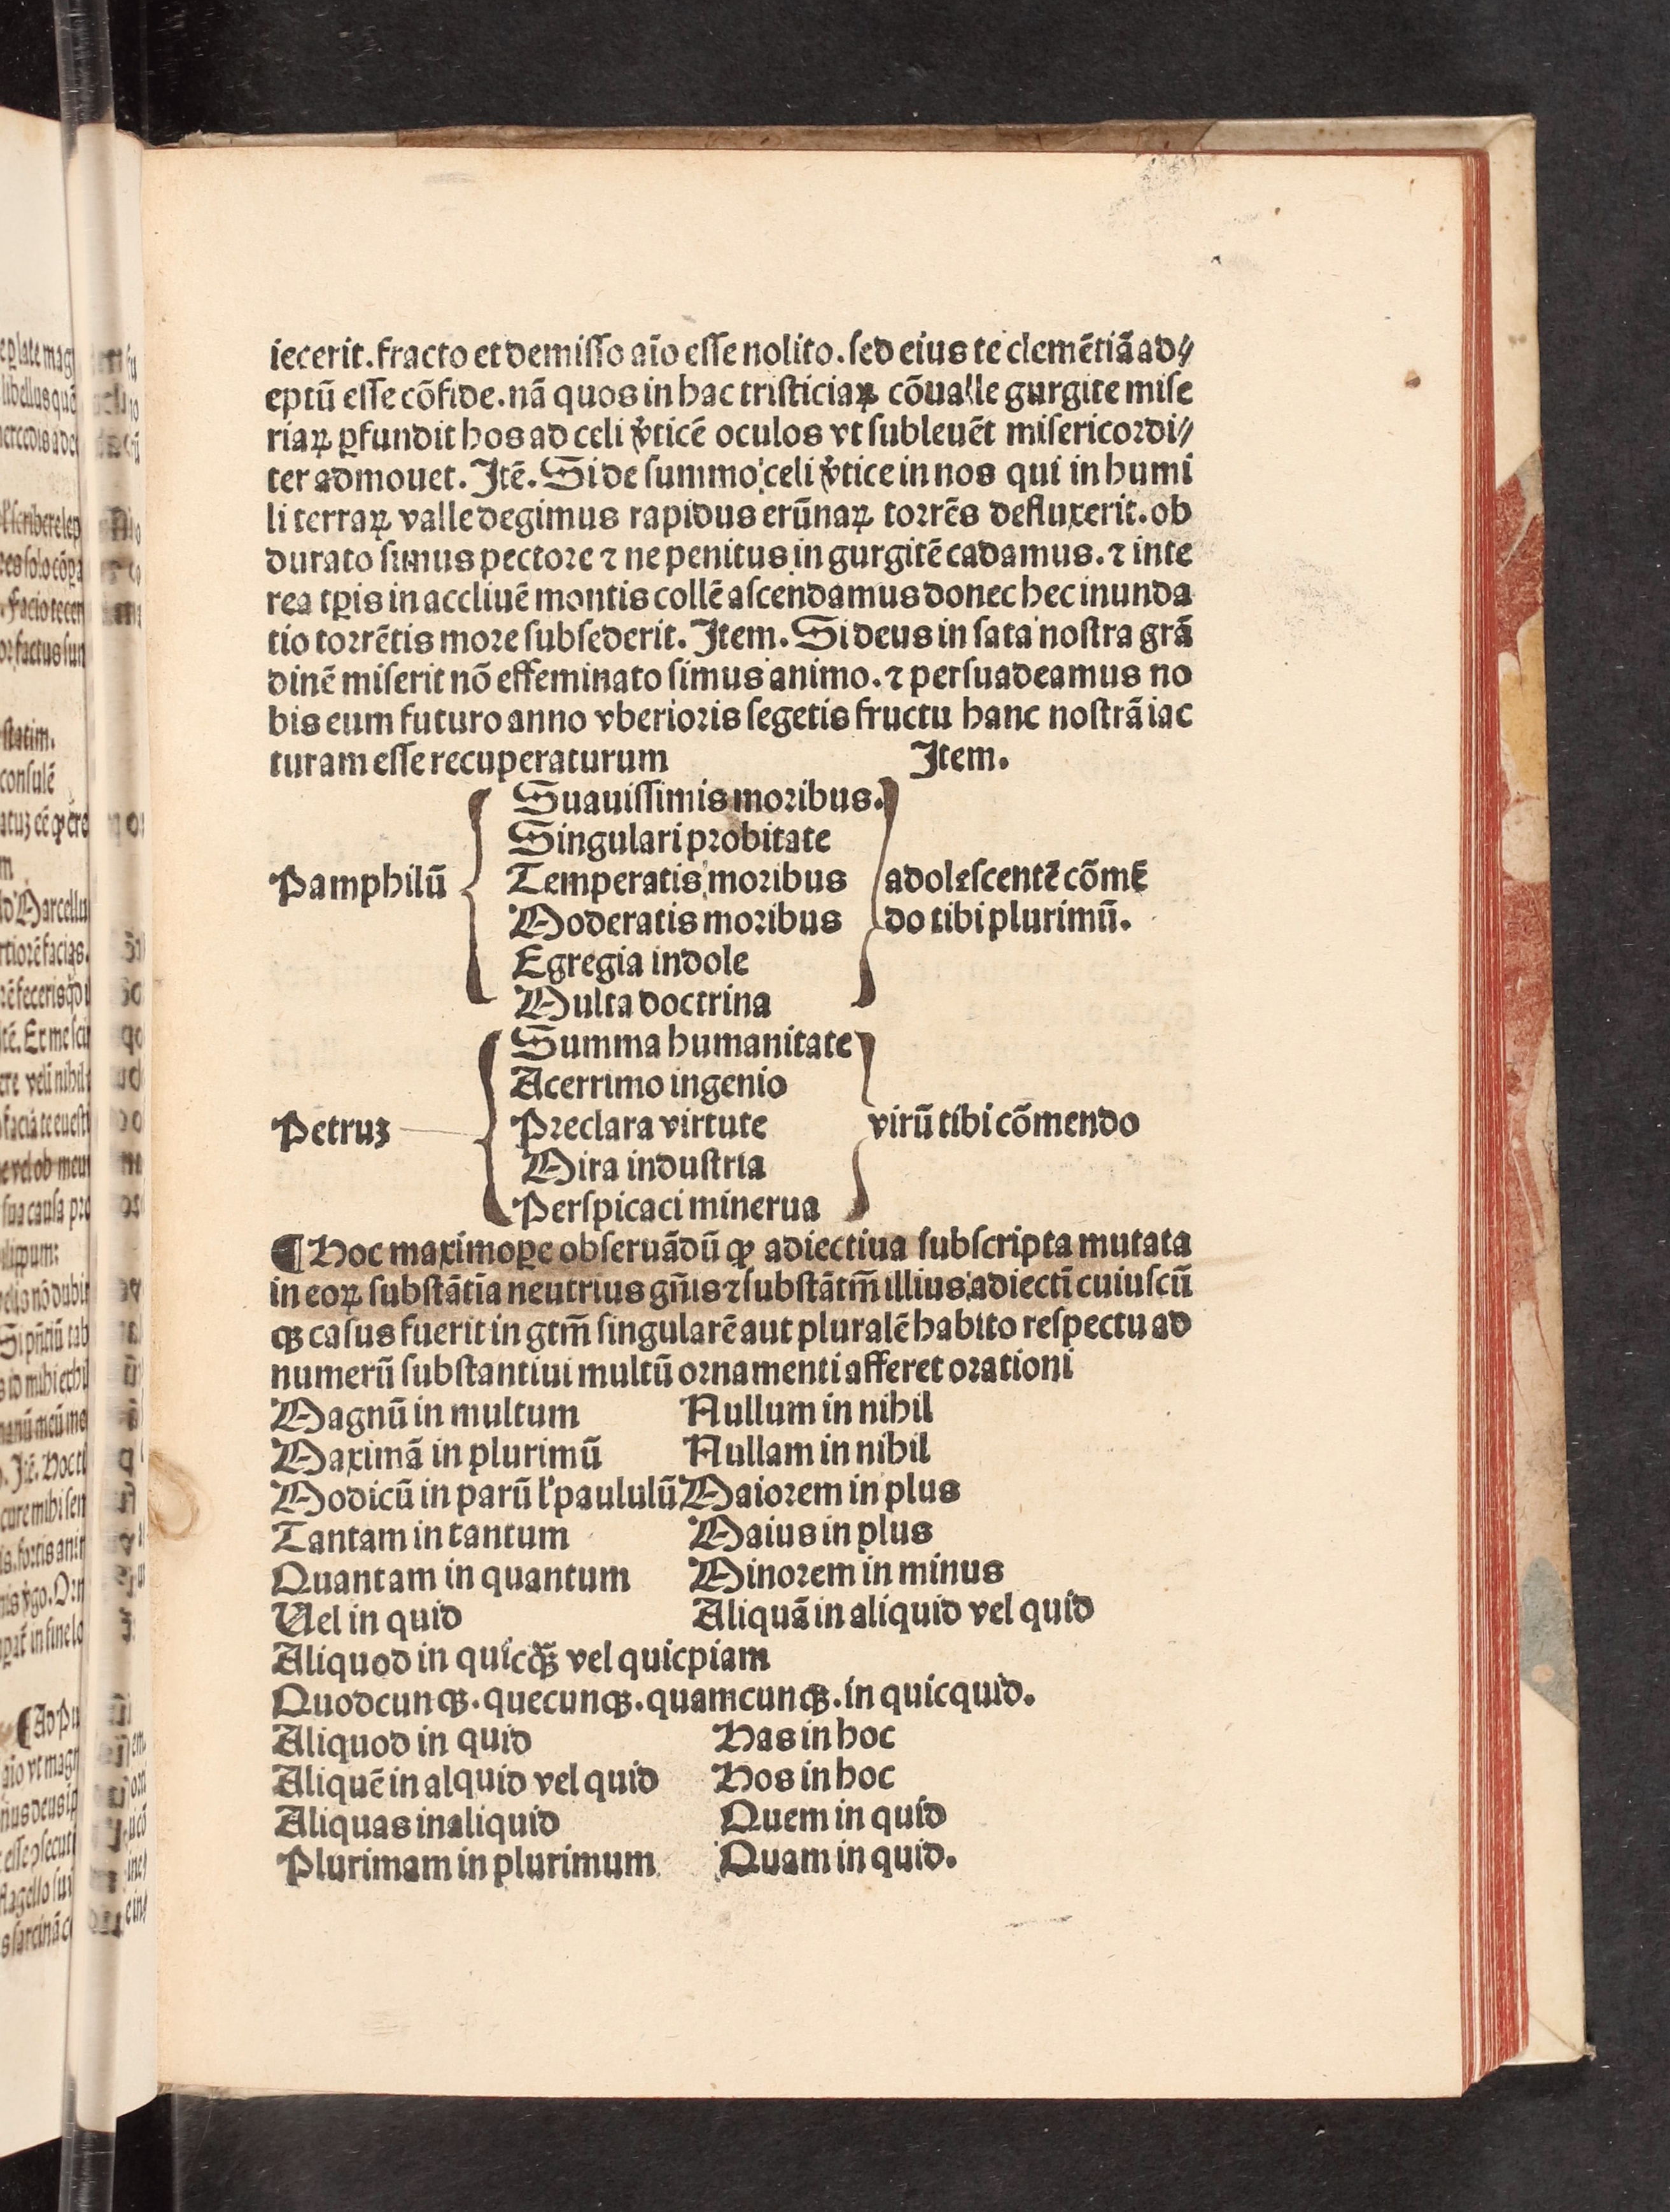 iecerit. fracto et demisso aīo esse nolito. sed eius te clemētiā ad⸗
eptū esse cōfide. nā quos in hac tristiciaꝝ cōualle gurgite mise
riaꝝ ꝓfundit hos ad celi v̾ticē oculos vt subleuēt misericordi⸗
ter admouet. Itē. Si de summo celi v̾tice in nos qui in humi
li terraꝝ valle degimus rapidus erūnaꝝ torrēs defluxerit. ob
durato simus pectore ⁊ ne penitus in gurgitē cadamus. ⁊ inte
rea tꝑis in accliuē montis collē ascendamus donec hec inunda
tio torrētis more subsederit. Item. Si deus in sata nostra grā
dinē miserit nō effeminato simus animo. ⁊ persuadeamus no
bis eum futuro anno vberioris segetis fructu hanc nostrā iac
turam esse recuperaturum Item.
Suauissimis moribus.
Singulari probitate
Pamphilū Temperatis moribus adolescentē cōmē
Moderatis moribus do tibi plurimū.
Egregia indole
Multa doctrina
Summa humanitate
Acerrimo ingenio
Petruꝫ Preclara virtute virū tibi cōmendo
Mira industria
Perspicaci minerua
¶ Hoc maximoꝑe obseruādū ꝙ adiectiua subscripta mutata
in eoꝝ substātīa neutrius gn̄is ⁊ substātm̄ illius adiecti cuiuscū
qꝫ casus fuerit in gtm̄ singularē aut pluralē habito respectu ad
numerū substantiui multū ornamenti afferet orationi
Magnū in multum Nullum in nihil
Maximā in plurimū Nullam in nihil
Modicū in parū l' paululū Maiorem in plus
Tantam in tantum Maius in plus
Quantam in quantum Minorem in minus
Uel in quid Aliquā in aliquid vel quid
Aliquod in quicqꝫ̄ vel quicpiam
Quodcunqꝫ. quecunqꝫ. quamcunqꝫ. in quicquid.
Aliquod in quid Has in hoc
Aliquē in alquid vel quid Hos in hoc
Aliquas in aliquid Quem in quid
Plurimam in plurimum Quam in quid.